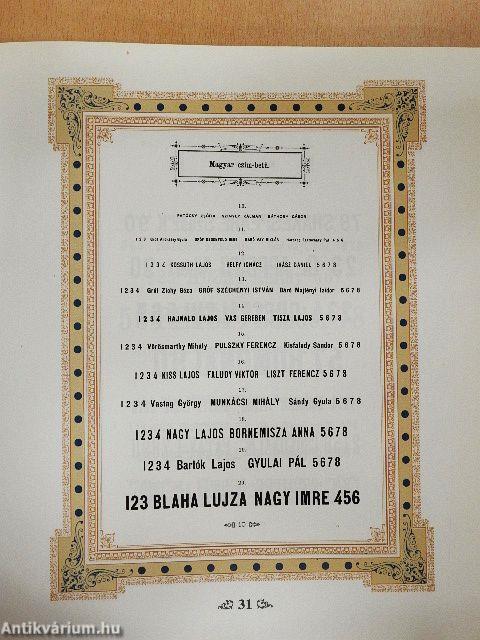 Magyar czim-betű.
10.
KÁLMÁN BÁTHORY GÁBOR
11.
1 2 3 GRÓF 4 5 6
12.
1 2 3 4 KOSSUTH LAJOS HELFY IGNÁCZ IRÁSZ DÁNIEL 5 6 7 8
13.
1 2 3 4 Gróf Zichy Géza GRÓF SZÉCHENYI ISTVÁN Báró Majthényi Izidor 5 6 7 8
14.
1 2 3 4 HAJNALD LAJOS VAS GEREBEN TISZA LAJOS 5 6 7 8
15.
1 2 3 4 Vörösmarthy Mihály PULSZKY FERENCZ Kisfaludy Sándor 5 6 7 8
16.
1 2 3 4 KISS LAJOS FALUDY VIKTOR LISZT FERENCZ 5 6 7 8
17.
1 2 3 4 Vastag György MUNKÁCSI MIHÁLY Sándy Gyula 5 6 7 8
18.
1234 NAGY LAJOS BORNEMISZA ANNA 5678
19.
1234 Bartók Lajos GYULAI PÁL 5678
20.
123 BLAHA LUJZA NAGY IMRE 456
10
31
Antikvárium.hu